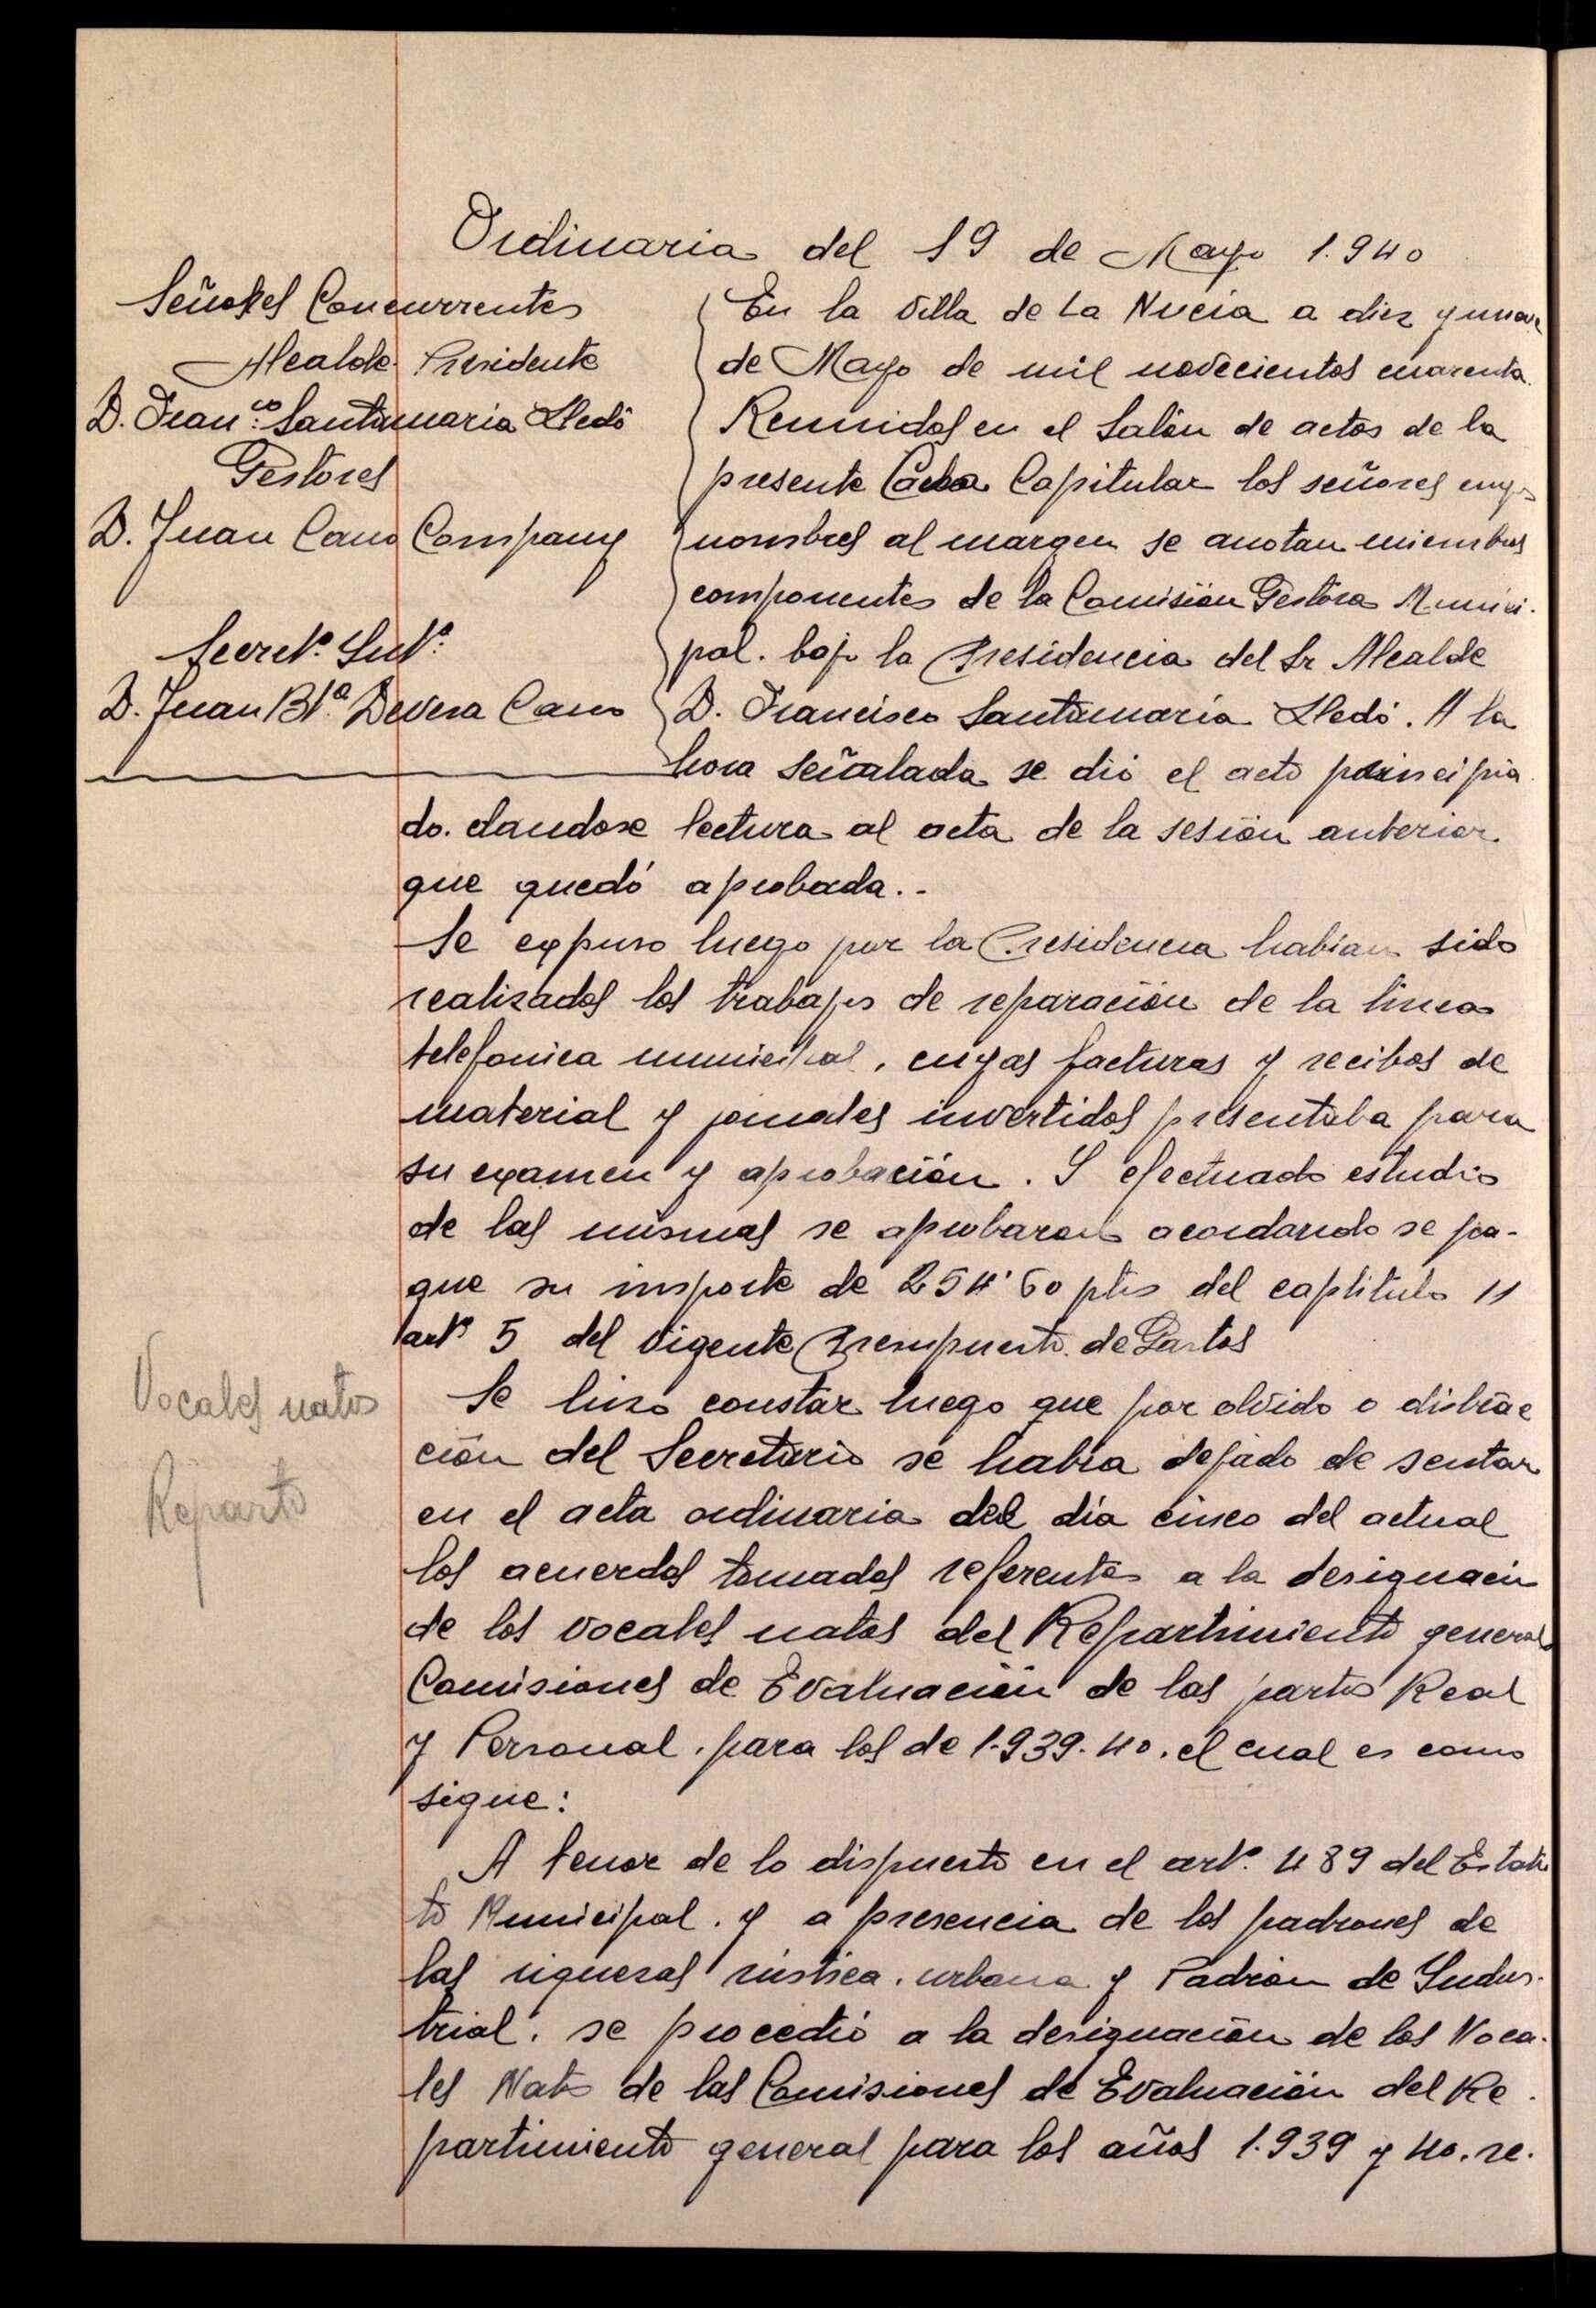 Ordinaria del 19 de Mayo 1.940
Señores Concurrentes
Alcalde Presidente
D. Fran.co Santamaria Lledó
Gestores
D. Juan Cano Company
Secretº. Intº.
D. Juan Btª. Devesa Cano
En la Villa de La Nucia a diez y nueve
de Mayo de mil novecientos cuarenta.
Reunidos en el Salón de actos de la
presente Casa Capitular los señores cuyos
nombres al margen se anotan miembros
componentes de la Comisión Gestora Munici-
pal. bajo la Presidencia del Sr Alcalde
D. Francisco Santamaria Lledó. A la
hora señalada se dió el acto principia
do. dandose lectura al acta de la sesión anterior
que quedó aprobada..
Se expuso luego por la Presidencia habian sido
realizados los trabajos de reparación de la linea
telefonica municipal, cuyas facturas y recibos de
material y jornales invertidos presentaba para
su examen y aprobación. Y efectuado estudio
de las mismas se aprobaron acordando se pa-
gue su importe de 254'60 ptas del capititulo 11
artº 5 del vigente Presupuesto de Gastos
Vocales natos
Reparto
Se hizo constar luego que por olvido o distrac
ción del Secretario se habia dejado de sentar
en el acta ordinaria del dia cinco del actual
los acuerdos tomados referentes a la designación
de los vocales natos del Repartimiento general
Comisiones de Evaluación de las partes Real
y Personal. para los de 1.939.40. el cual es como
sigue:
A tenor de lo dispuesto en el artº. 489 del Estatu
to Municipal. y a presencia de los padrones de
las riquezas rústica. urbana y Padrón de Indus-
trial. se procedió a la designación de los Voca-
les Natos de las Comisiones de Evaluación del Re-
partimiento general para los años 1.939 y 40. re-